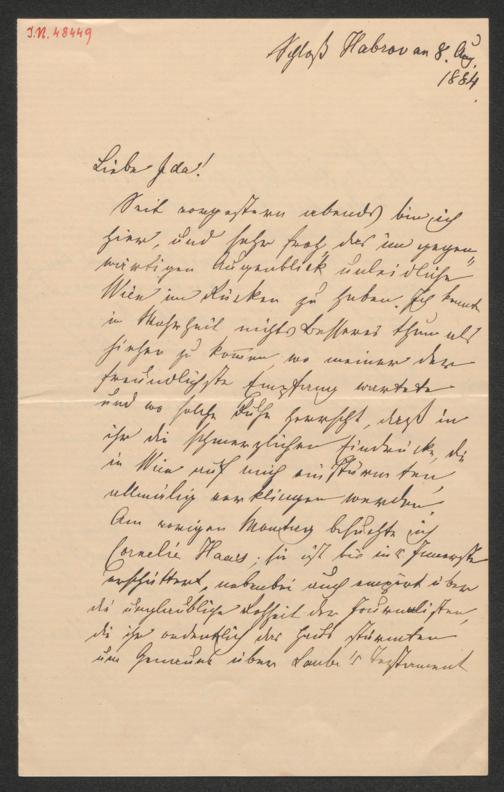 J.N. 48449
Schloß Habrov am 8. Aug.
1884.
Liebe Ida!
Seit vorgestern abends bin ich
hier, und sehr froh, das im gegen-
wärtigen Augenblick unleidliche
Wien im Rücken zu haben. Ich konnte
in Wahrheit nichts Besseres thun als
hieher zu kommen, wo meiner der
freundlichste Empfang wartete
und wo solche Ruhe herrscht, daß in
ihr die schmerzlichen Eindrücke, die
in Wien auf mich einstürmten,
allmälig verklingen werden.
Am vorigen Montag besuchte ich
Cornelie Haas; sie ist bis in's Innerste
erschüttert, nebenbei auch empört über
die unglaubliche Rohheit der Journalisten,
die ihr ordentlich das Haus stürmten
um Genaues über Laube's Testament